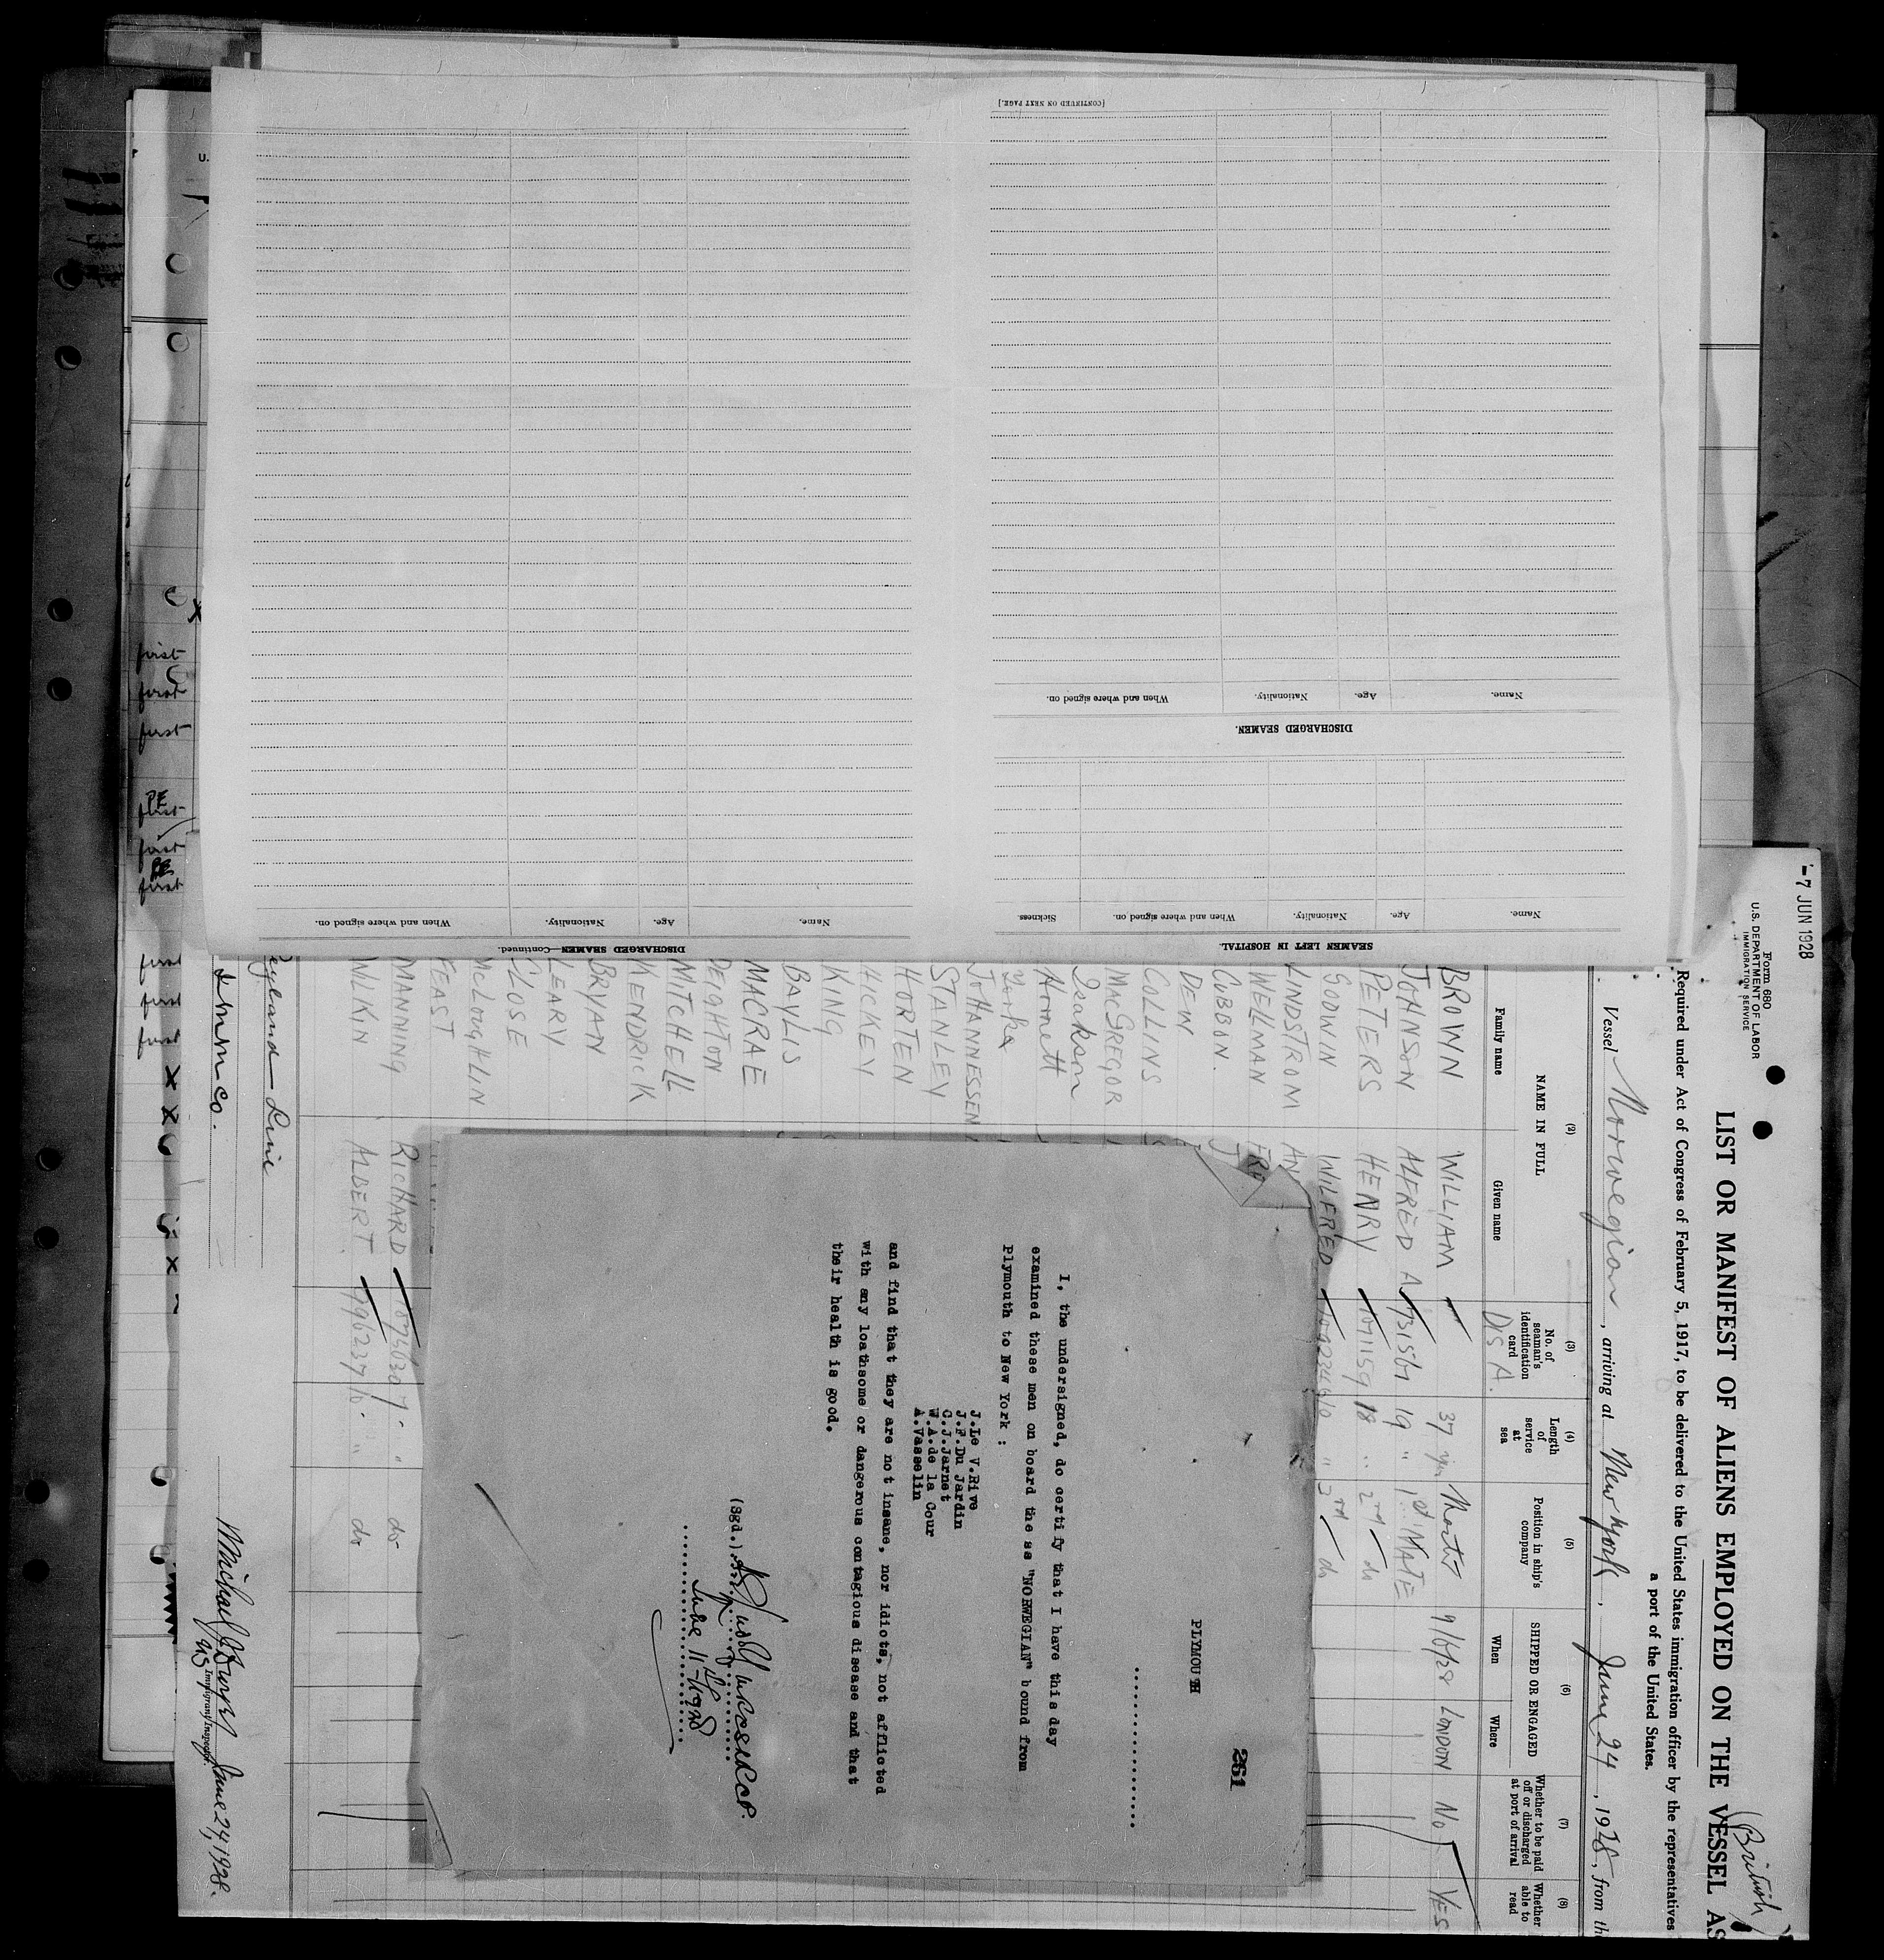 - 7 JUN 1928
Form 680
U.S. DEPARTMENT OF LABOR
IMMIGRATION SERVICE
(British)
LIST OR MANIFEST OF ALIENS EMPLOYED ON THE VESSEL AS
Required under Act of Congress of February 5, 1917, to be delivered to the United States immigration officer by the representatives
a port of the United States.
Vessel Norwegian, arriving at New York, June 24, 1928, from th
(2)
NAME IN FULL
Family name
Given name
(3)
No. of seaman's identification card
(4)
Length of service at sea
(5)
Position in ship's company
(6)
SHIPPED OR ENGAGED
When
Where
(7)
Whether to be paid off or discharged at port of arrival
(8)
Whether able to read
DIS A.
BROWN WILLIAM 37 yrs Master 9/6/28 LONDON No YES
JOHNSON ALFRED A 19 " 1st MATE
PETERS HENRY 1071159 18 " 2nd do
GODWIN WILFRED 10 " 3rd do
LINDSTROM AN
WELLMAN FRE
CUBBON.
DEW
COLLINS
MACGREGOR
Isakson
Hornett
JOHANNESSEN
STANLEY
HORTEN
HICKEY
KING
BAYLIS
MACRAE
DEIGHTON
MITCHELL
KENDRICK
BRYAN
LEARY
CLOSE
McLOUGHLIN
FEAST
MANNING RICHARD do
WILKIN ALBERT 10 " do
Leyland Line
I M M Co.
Immigrant Inspector.
June 24, 1928.
261
PLYMOUTH
I, the undersigned, do certify that I have this day
examined these men on board the ss "NORWEGIAN" bound from
Plymouth to New York :
J.Le V.Rive
J.F.Du Jardin
C.J.Jarnet
W.A.de la Cour
A.Vasselin
and find that they are not insane, nor idiots, not afflicted
with any loathsome or dangerous contagious disease and that
their health is good.
(Sgd.)
June 11-1928
SEAMEN LEFT IN HOSPITAL.
Name.
Age.
Nationality.
When and where signed on.
Sickness.
DISCHARGED SEAMEN.
Name.
Age.
Nationality.
When and where signed on.
[CONTINUED ON NEXT PAGE.]
DISCHARGED SEAMEN—Continued.
Name.
Age.
Nationality.
When and where signed on.
U.
first
first
first
PE
first
first
PE
first
first
first
first